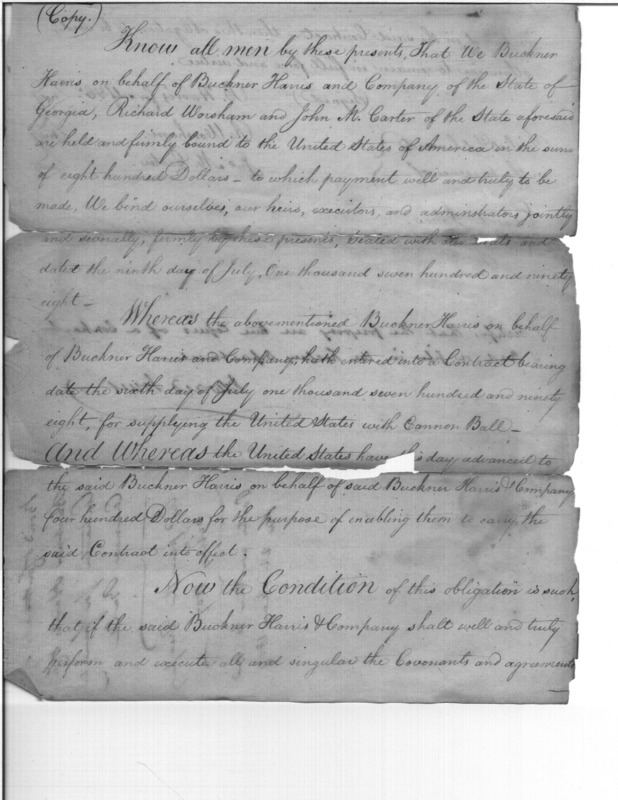 (Copy.)
Know all men by these presents, That We Buckner
Harris, on behalf of Buckner Harris and Company of the State of
Georgia, Richard Worsham and John M. Carter of the State aforesaid
are held and firmly bound to the United States of America in the sum
of eight hundred Dollars - to which payment well and truly to be
made, We bind ourselves, our heirs, executors, and adminstrators jointly
and severally, firmly by these presents, sealed with our seals and
dated the ninth day of July, One thousand seven hundred and ninety
eight -
Whereas the abovementioned Buckner Harris on behalf
of Buckner Harris and Company, hath entered into a Contract bearing
date the sixth day of July one thousand seven hundred and ninety
eight, for supplying the United States with Cannon Ball -
And Whereas the United States have day advanced to
the said Buckner Harris on behalf of said Buckner Harris & Company
four hundred Dollars for the purpose of enabling them to carry the
said Contract into effect.
Now the Condition of this obligation is such,
that if the said Buckner Harris & Company shall well and truly
perform and execute all and singular the Covenants and agreements